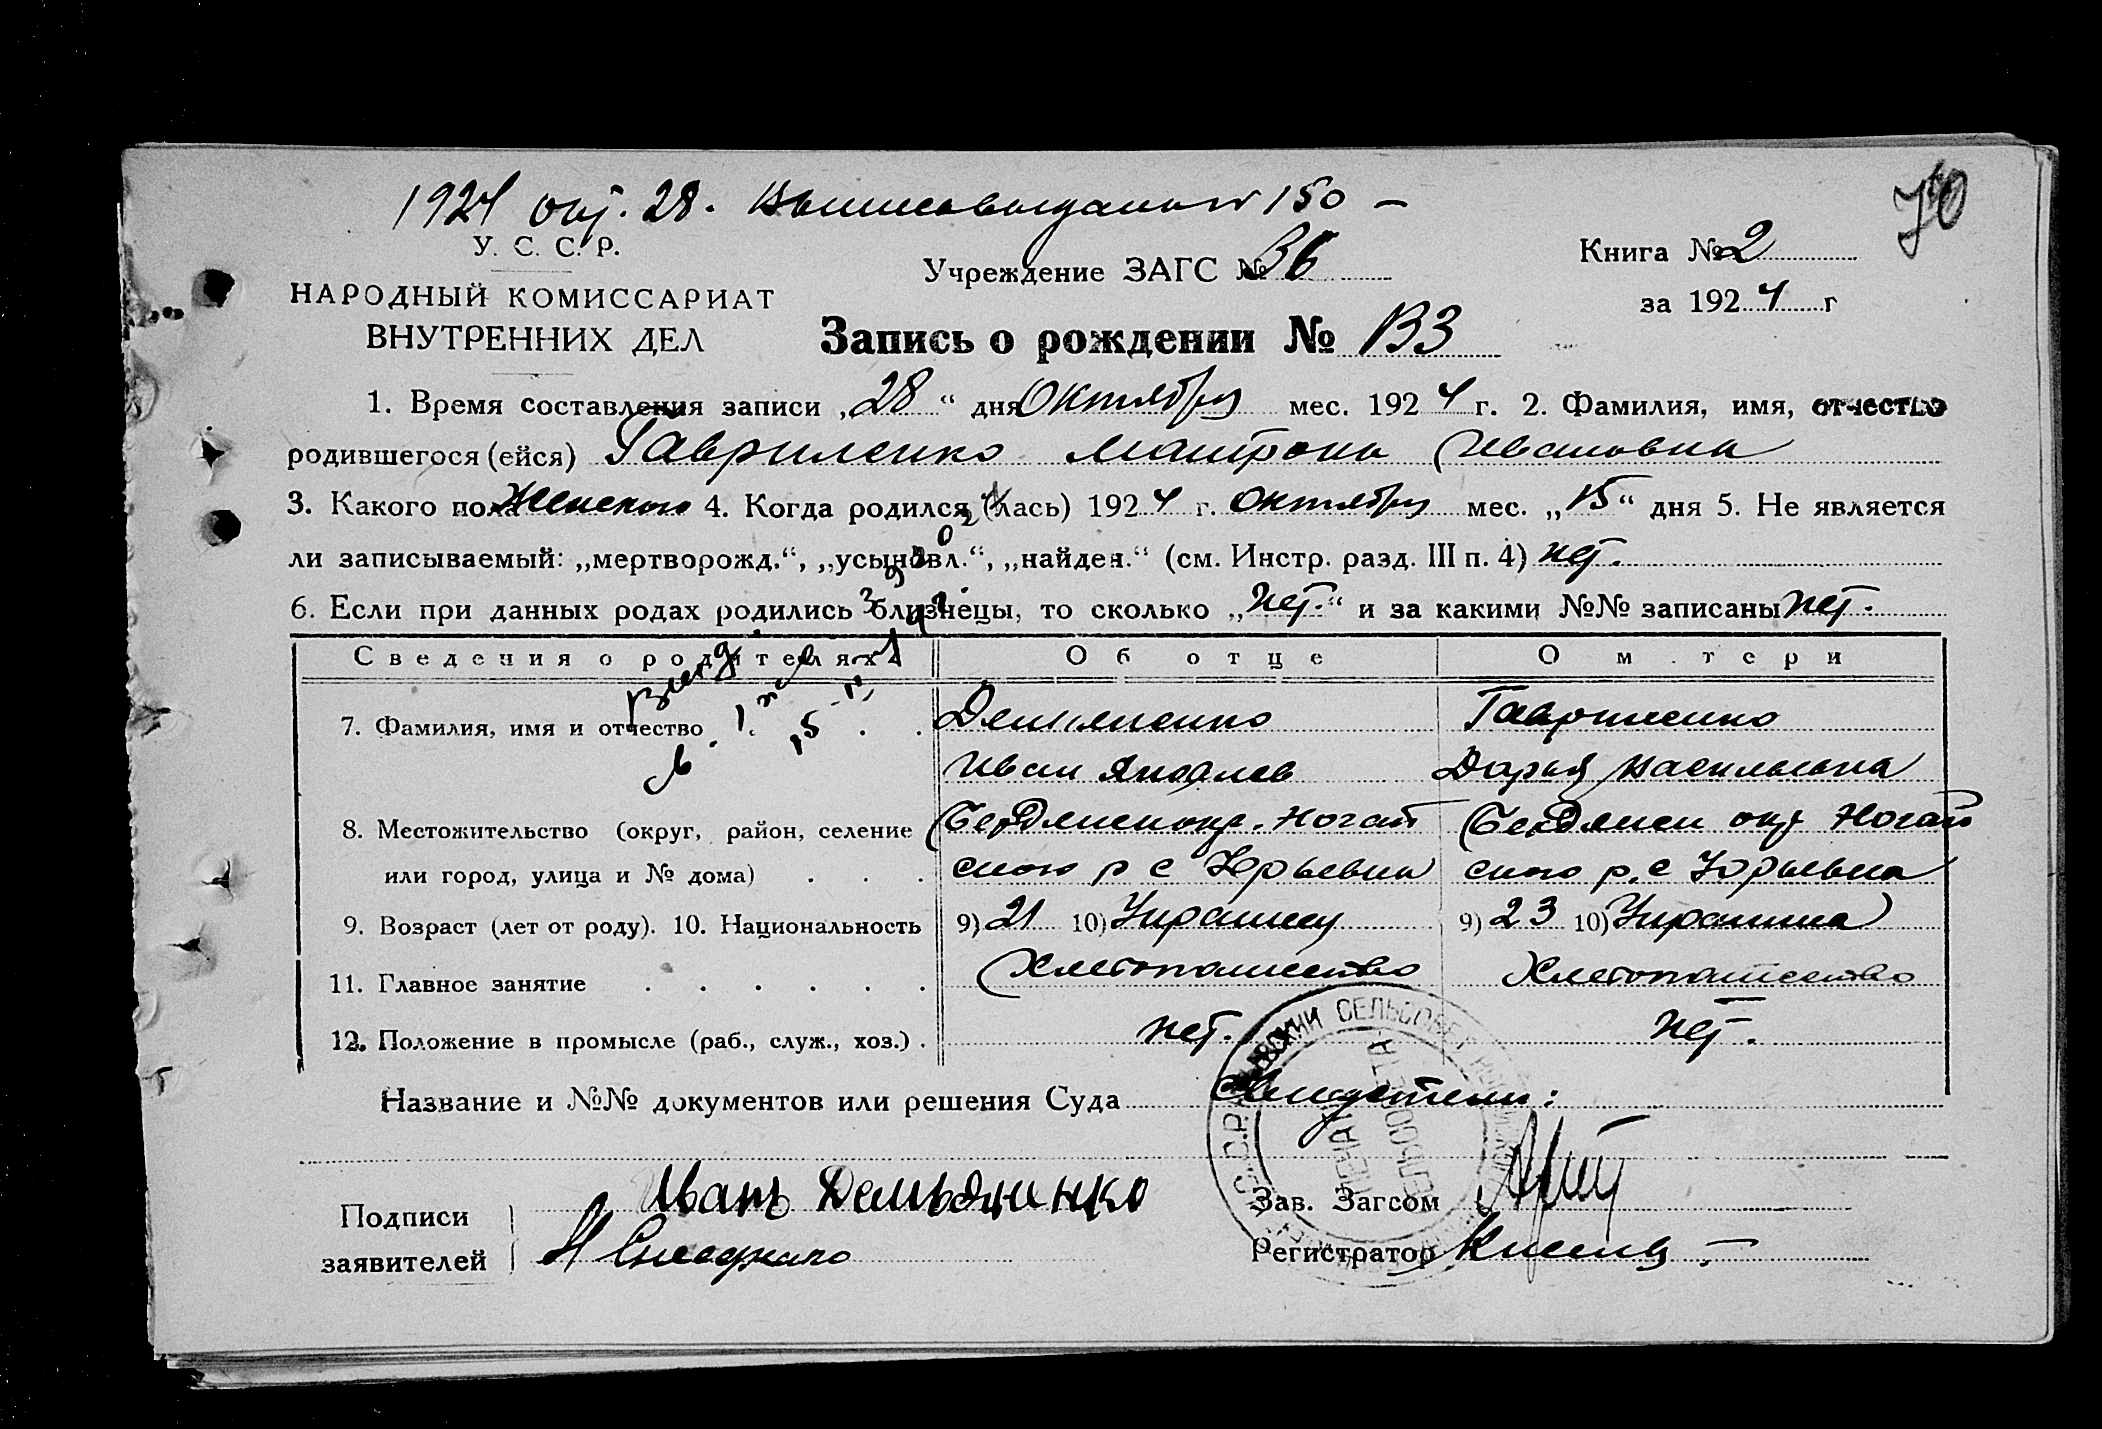 1924 окт. 28. Выписовыдана № 150 —
70
У. С. С. Р.
НАРОДНЫЙ КОМИССАРИАТ
ВНУТРЕННИХ ДЕЛ
Учреждение ЗАГС № 36
Книга № 2
за 1924 г
Запись о рождении № 133
1. Время составления записи „28“ дня Октября мес. 1924 г. 2. Фамилия, имя, отчество
родившегося (ейся) Гавриленко Матрона Ивановна
3. Какого пола Женского 4. Когда родился (лась) 1924 г. октября мес. „15“ дня 5. Не является
ли записываемый: „мертворожд.“, „усыновл.“, „найден.“ (см. Инстр. разд. III п. 4) нет.
6. Если при данных родах родились близнецы, то сколько „нет.“ и за какими №№ записаны нет.
Сведения о родителях Об отце О м тери
7. Фамилия, имя и отчество Демьяненко Гавриленко
Иван Яковлев Дарья Васильевна
8. Местожительство (округ, район, селение Бердянск окр. Ногай Бердянск окр Ногай
или город, улица и № дома) ского р с Юрьевка ского р. с Юрьевка
9. Возраст (лет от роду). 10. Национальность 9) 21 10) Украинец 9) 23 10) Украинка
11. Главное занятие Хлебопашество Хлебопашество
12. Положение в промысле (раб., служ., хоз.) нет. нет.
Название и №№ документов или решения Суда Свидетели:
Подписи заявителей Иванъ Демьдиинко
Зав. Загсом
Регистратор
СЕЛЬСОВЕТ
ПЕЧАТЬ
СЕЛЬСОВЕТА